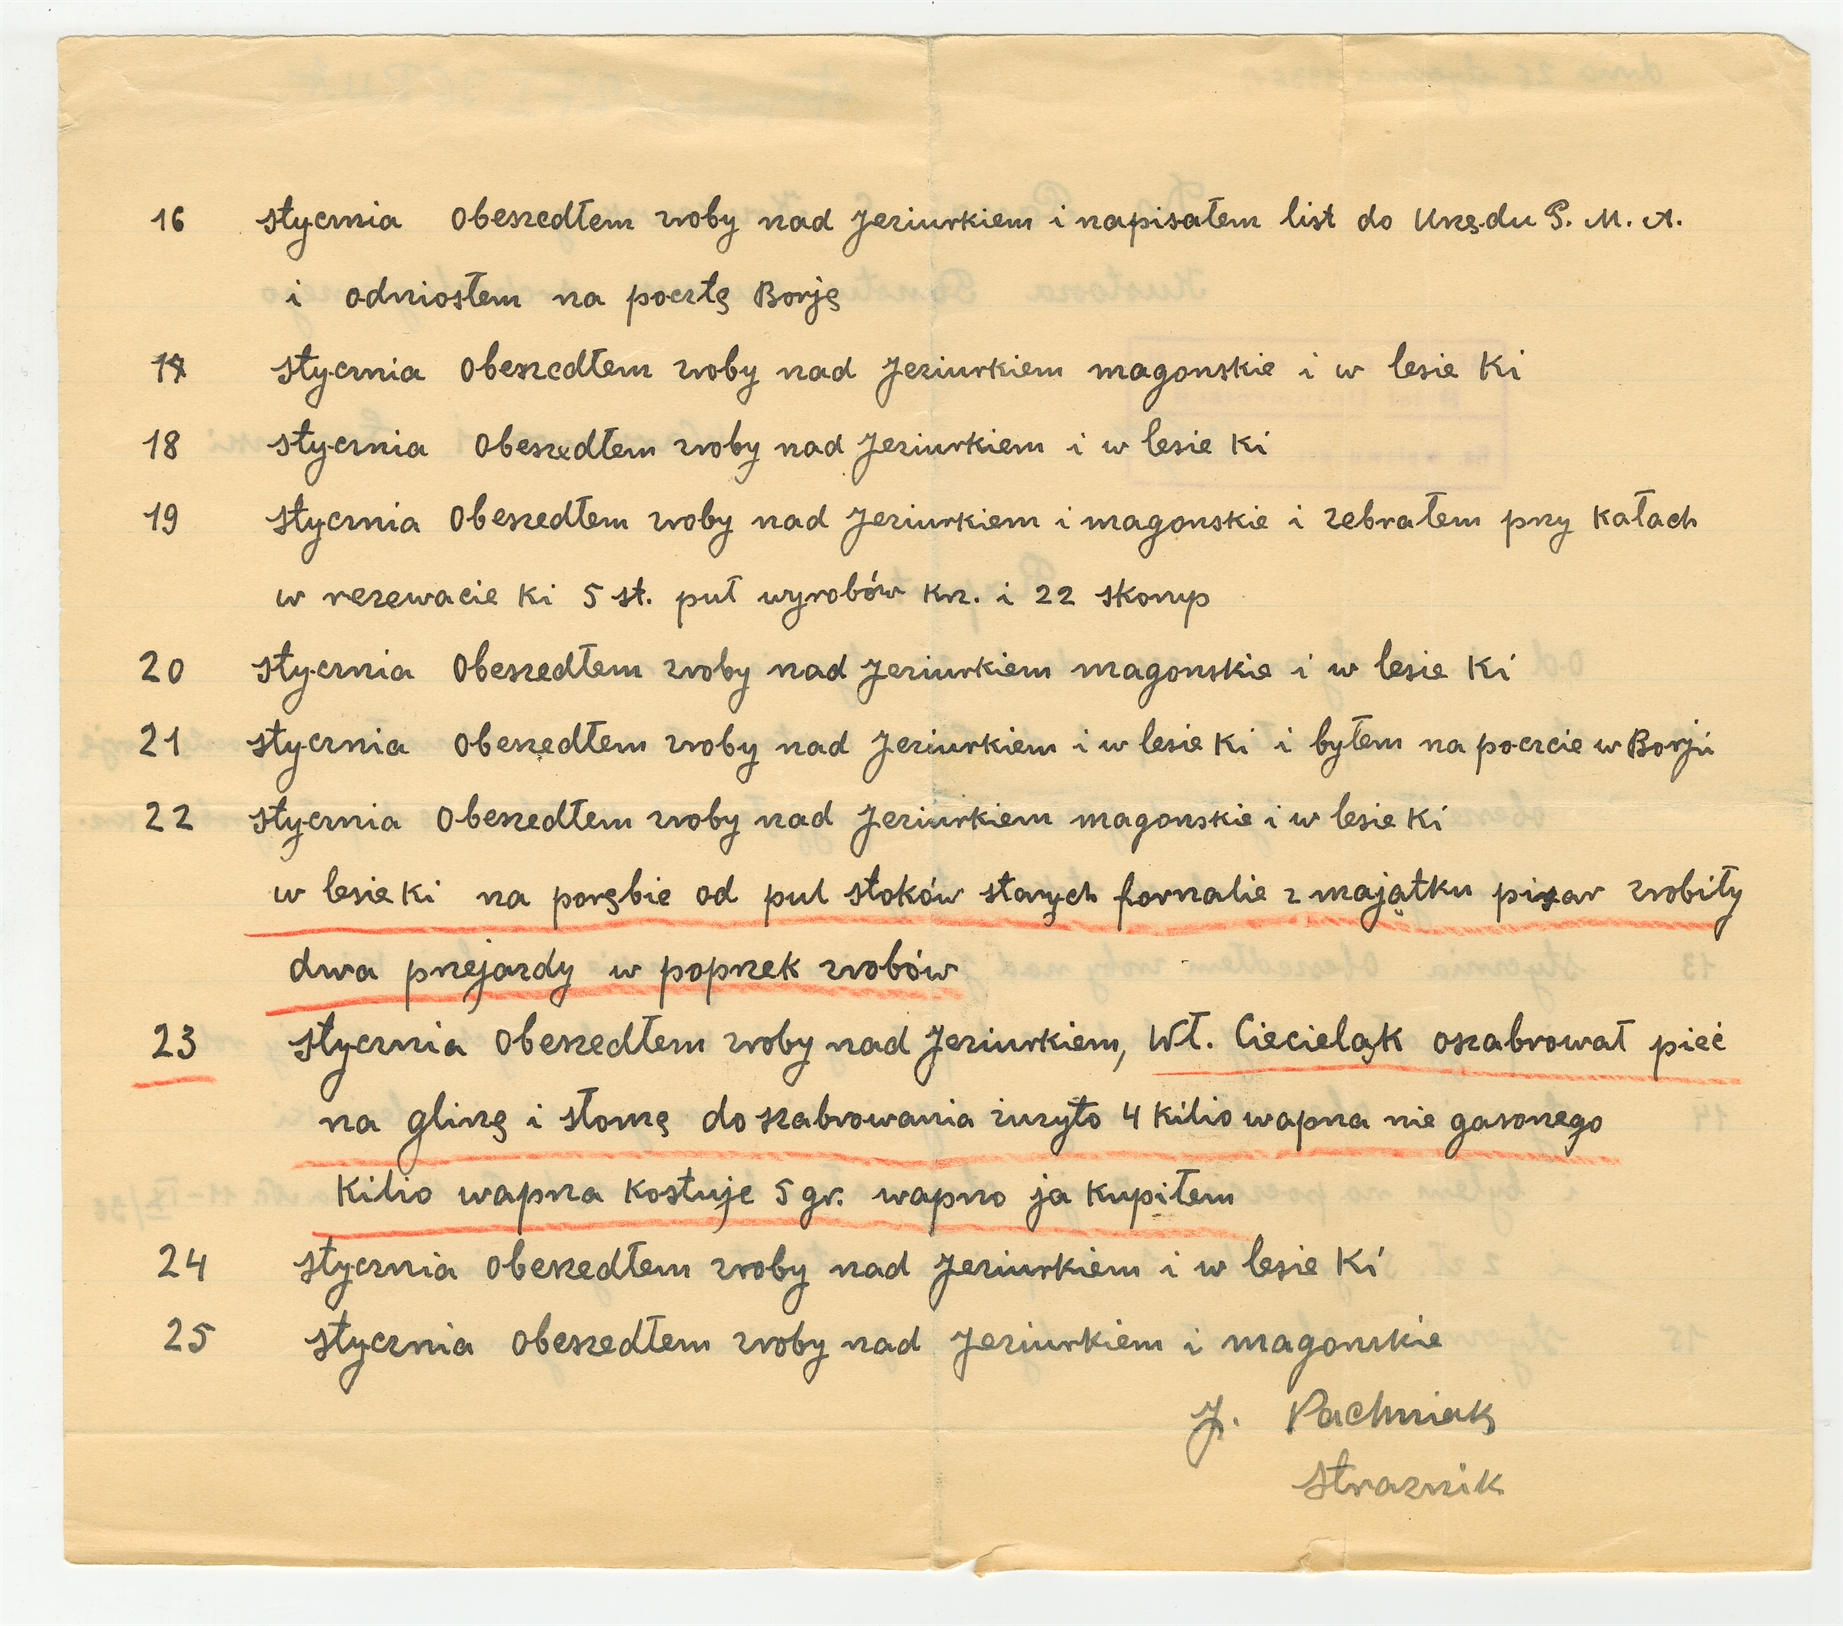 16 stycznia Obeszedłem zroby nad Jeziurkiem i napisałem list do Urzędu P. M. A.
i odniosłem na pocztę Borję
17 stycznia Obeszedłem zroby nad Jeziurkiem magonskie i w lesie Ki
18 stycznia Obeszedłem zroby nad Jeziurkiem i w lesie Ki
19 stycznia Obeszedłem zroby nad Jeziurkiem i magonskie i zebrałem przy Kałach
w rezewacie Ki 5 st. puł wyrobów Krz. i 22 skorup
20 stycznia Obeszedłem zroby nad Jeziurkiem magonskie i w lesie Ki
21 stycznia Obeszedłem zroby nad Jeziurkiem i w lesie Ki i byłem na poczcie w Borjü
22 stycznia Obeszedłem zroby nad Jeziurkiem magonskie i w lesie Ki
w lesie Ki na porębie od pul stoków starych fornalie z majątku pisar zrobiły
dwa przejazdy w poprzek zrobów
23 stycznia Obeszedłem zroby nad Jeziurkiem, Wł. Cieciela̧k oszabrował pieć
na glinę i słomę do szabrowania zuzyto 4 Kilio wapna nie gasonego
Kilio wapna Kostuje 5 gr. wapno ja Kupiłem
24 stycznia Obeszedłem zroby nad Jeziurkiem i w lesie Ki
25 stycznia Obeszedłem zroby nad Jeziurkiem i magonskie
J. Pachniak
Straznik